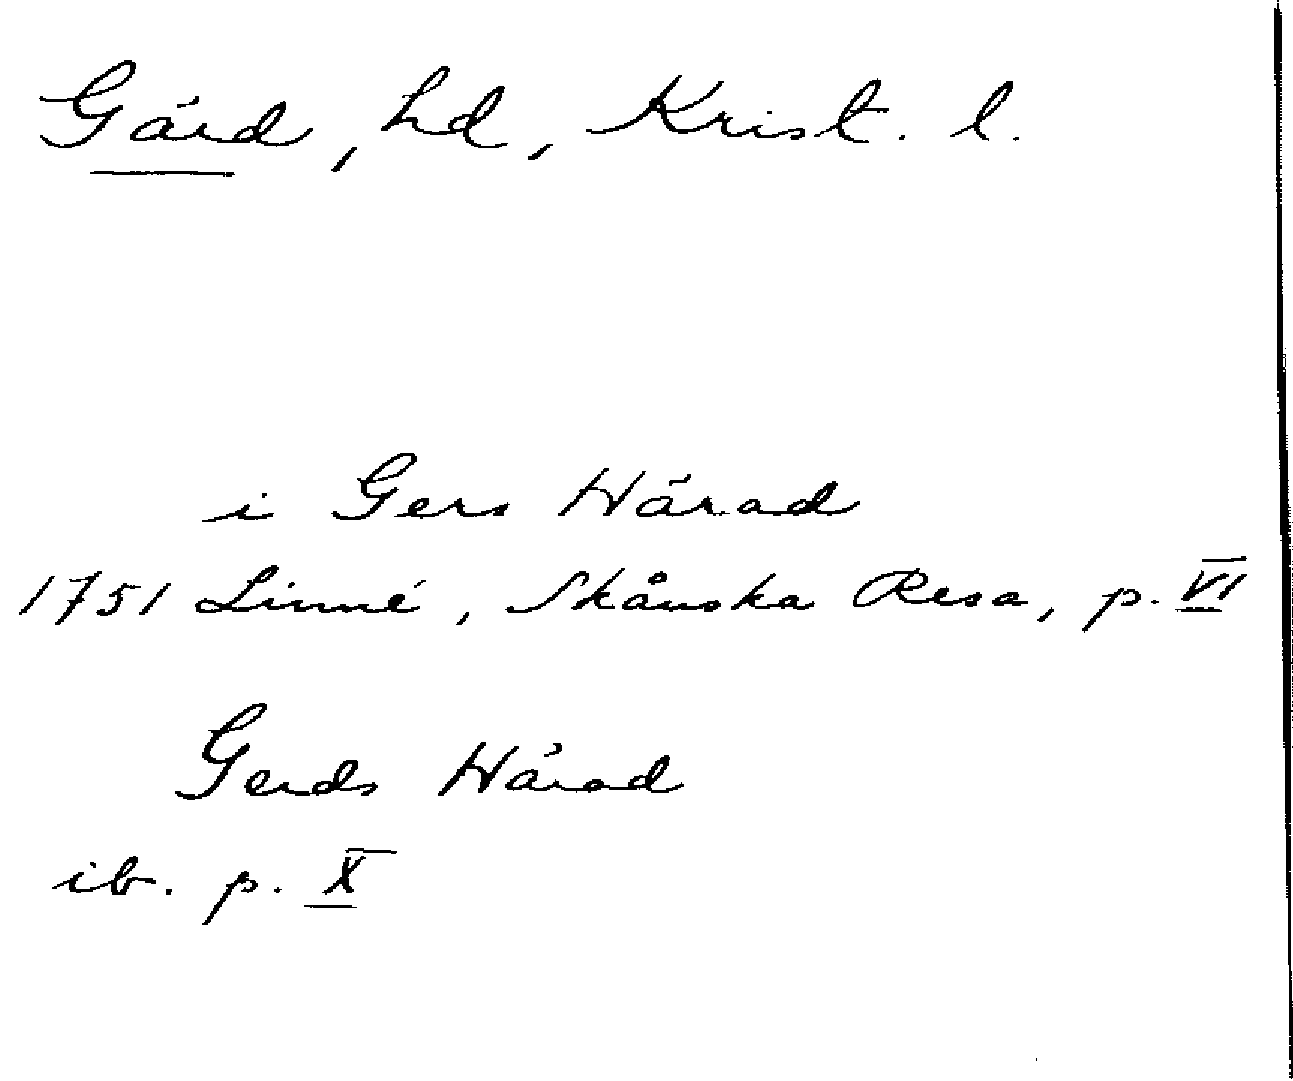 Gärd, hd, Krist. l.
i Gers Härad
1751 Linné, Skånska Resa, p. VI
Gerds Härad
ib. p. X